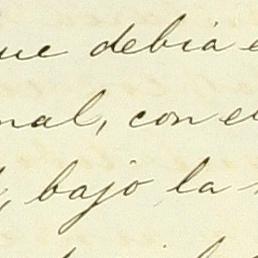 que debia e
nal, con el
, bajo la